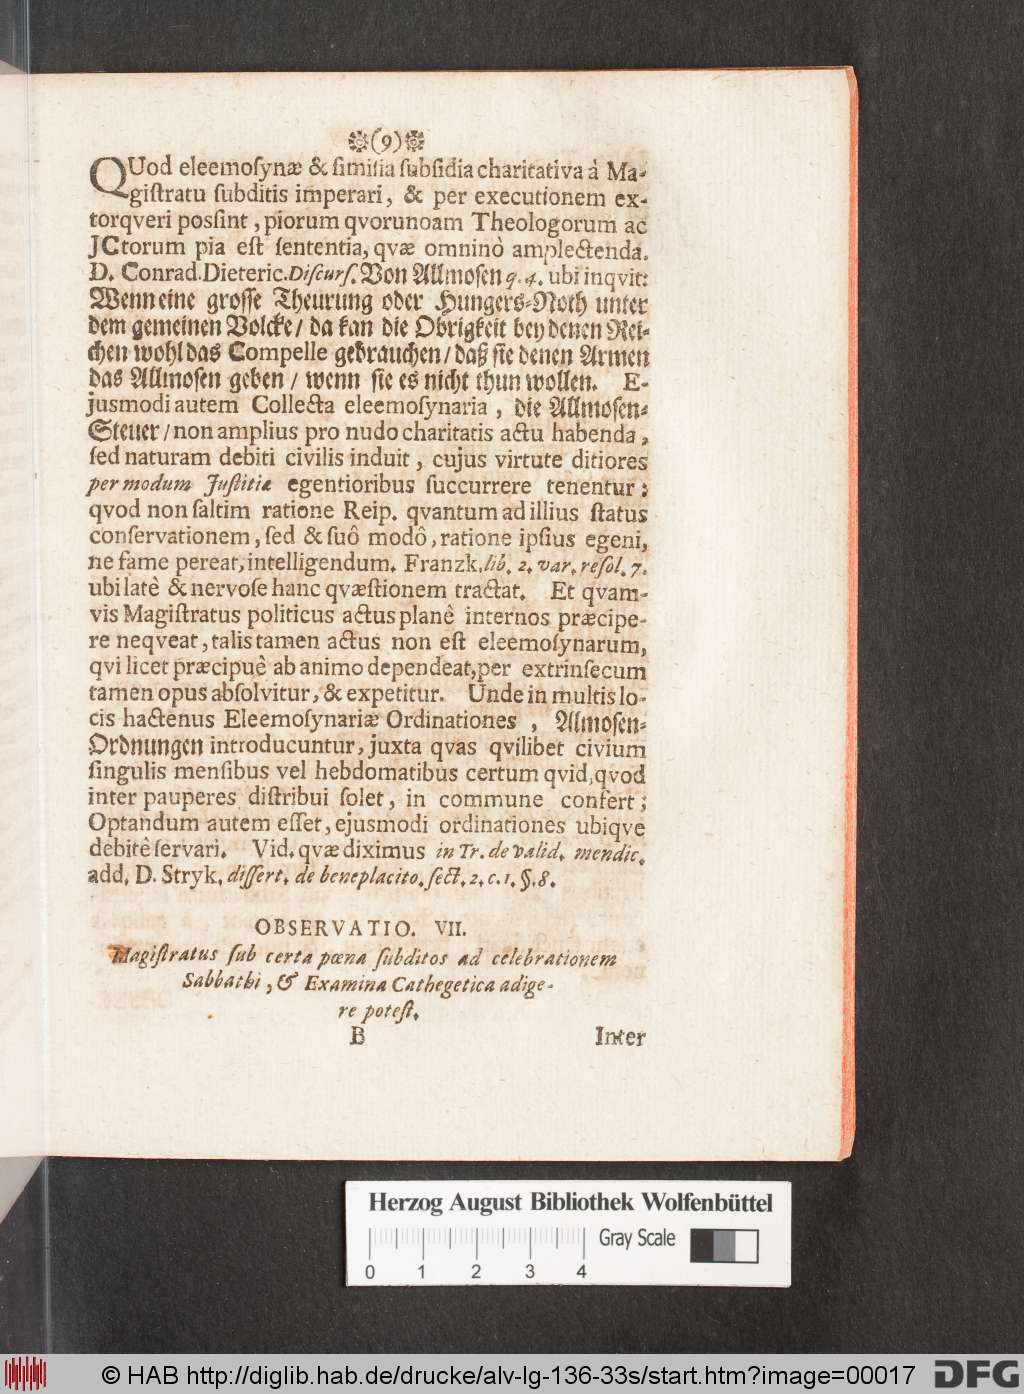 ❁(9)❁
QUod eleemoſynæ & ſimilia ſubſidia charitativa à Ma-
giſtratu ſubditis imperari, & per executionem ex-
torqveri poſſint, piorum qvorunoam Theologorum ac
JCtorum pia eſt ſententia, qvæ omninò amplectenda.
D. Conrad. Dieteric. Diſcurſ. Von Allmoſen q. 4. ubi inqvit:
Wenn eine groſſe Theurung oder Hungers-Noth unter
dem gemeinen Volcke/ da kan die Obrigkeit bey denen Rei-
chen wohl das Compelle gebrauchen/ daß ſie denen Armen
das Allmoſen geben / wenn ſie es nicht thun wollen. E-
jusmodi autem Collecta eleemoſynaria, die Allmoſen-
Steuer/ non amplius pro nudo charitatis actu habenda,
ſed naturam debiti civilis induit, cujus virtute ditiores
per modum Juſtitiæ egentioribus ſuccurrere tenentur;
qvod non ſaltim ratione Reip. qvantum ad illius ſtatus
conſervationem, ſed & ſuô modô, ratione ipſius egeni,
ne fame pereat, intelligendum. Franzk. lib. 2. var. reſol. 7.
ubi latê & nervoſe hanc qvæſtionem tractat. Et qvam-
vis Magiſtratus politicus actus planê internos præcipe-
re neqveat, talis tamen actus non eſt eleemoſynarum,
qvi licet præcipuê ab animo dependeat, per extrinſecum
tamen opus abſolvitur, & expetitur. Unde in multis lo-
cis hactenus Eleemoſynariæ Ordinationes, Almoſen-
Ordnungen introducuntur, juxta qvas qvilibet civium
ſingulis menſibus vel hebdomatibus certum qvid, qvod
inter pauperes diſtribui ſolet, in commune confert;
Optandum autem eſſet, ejusmodi ordinationes ubiqve
debitê ſervari. Vid. qvæ diximus in Tr. de valid. mendic.
add. D. Stryk. diſſert. de beneplacito. ſect. 2. c. 1. §. 8.
OBSERVATIO. VII.
Magiſtratus ſub certa pœna ſubditos ad celebrationem
Sabbathi, & Examina Cathegetica adige-
re poteſt.
B Inter
Herzog August Bibliothek Wolfenbüttel
Gray Scale
0 1 2 3 4
© HAB http://diglib.hab.de/drucke/alv-lg-136-33s/start.htm?image=00017 DFG